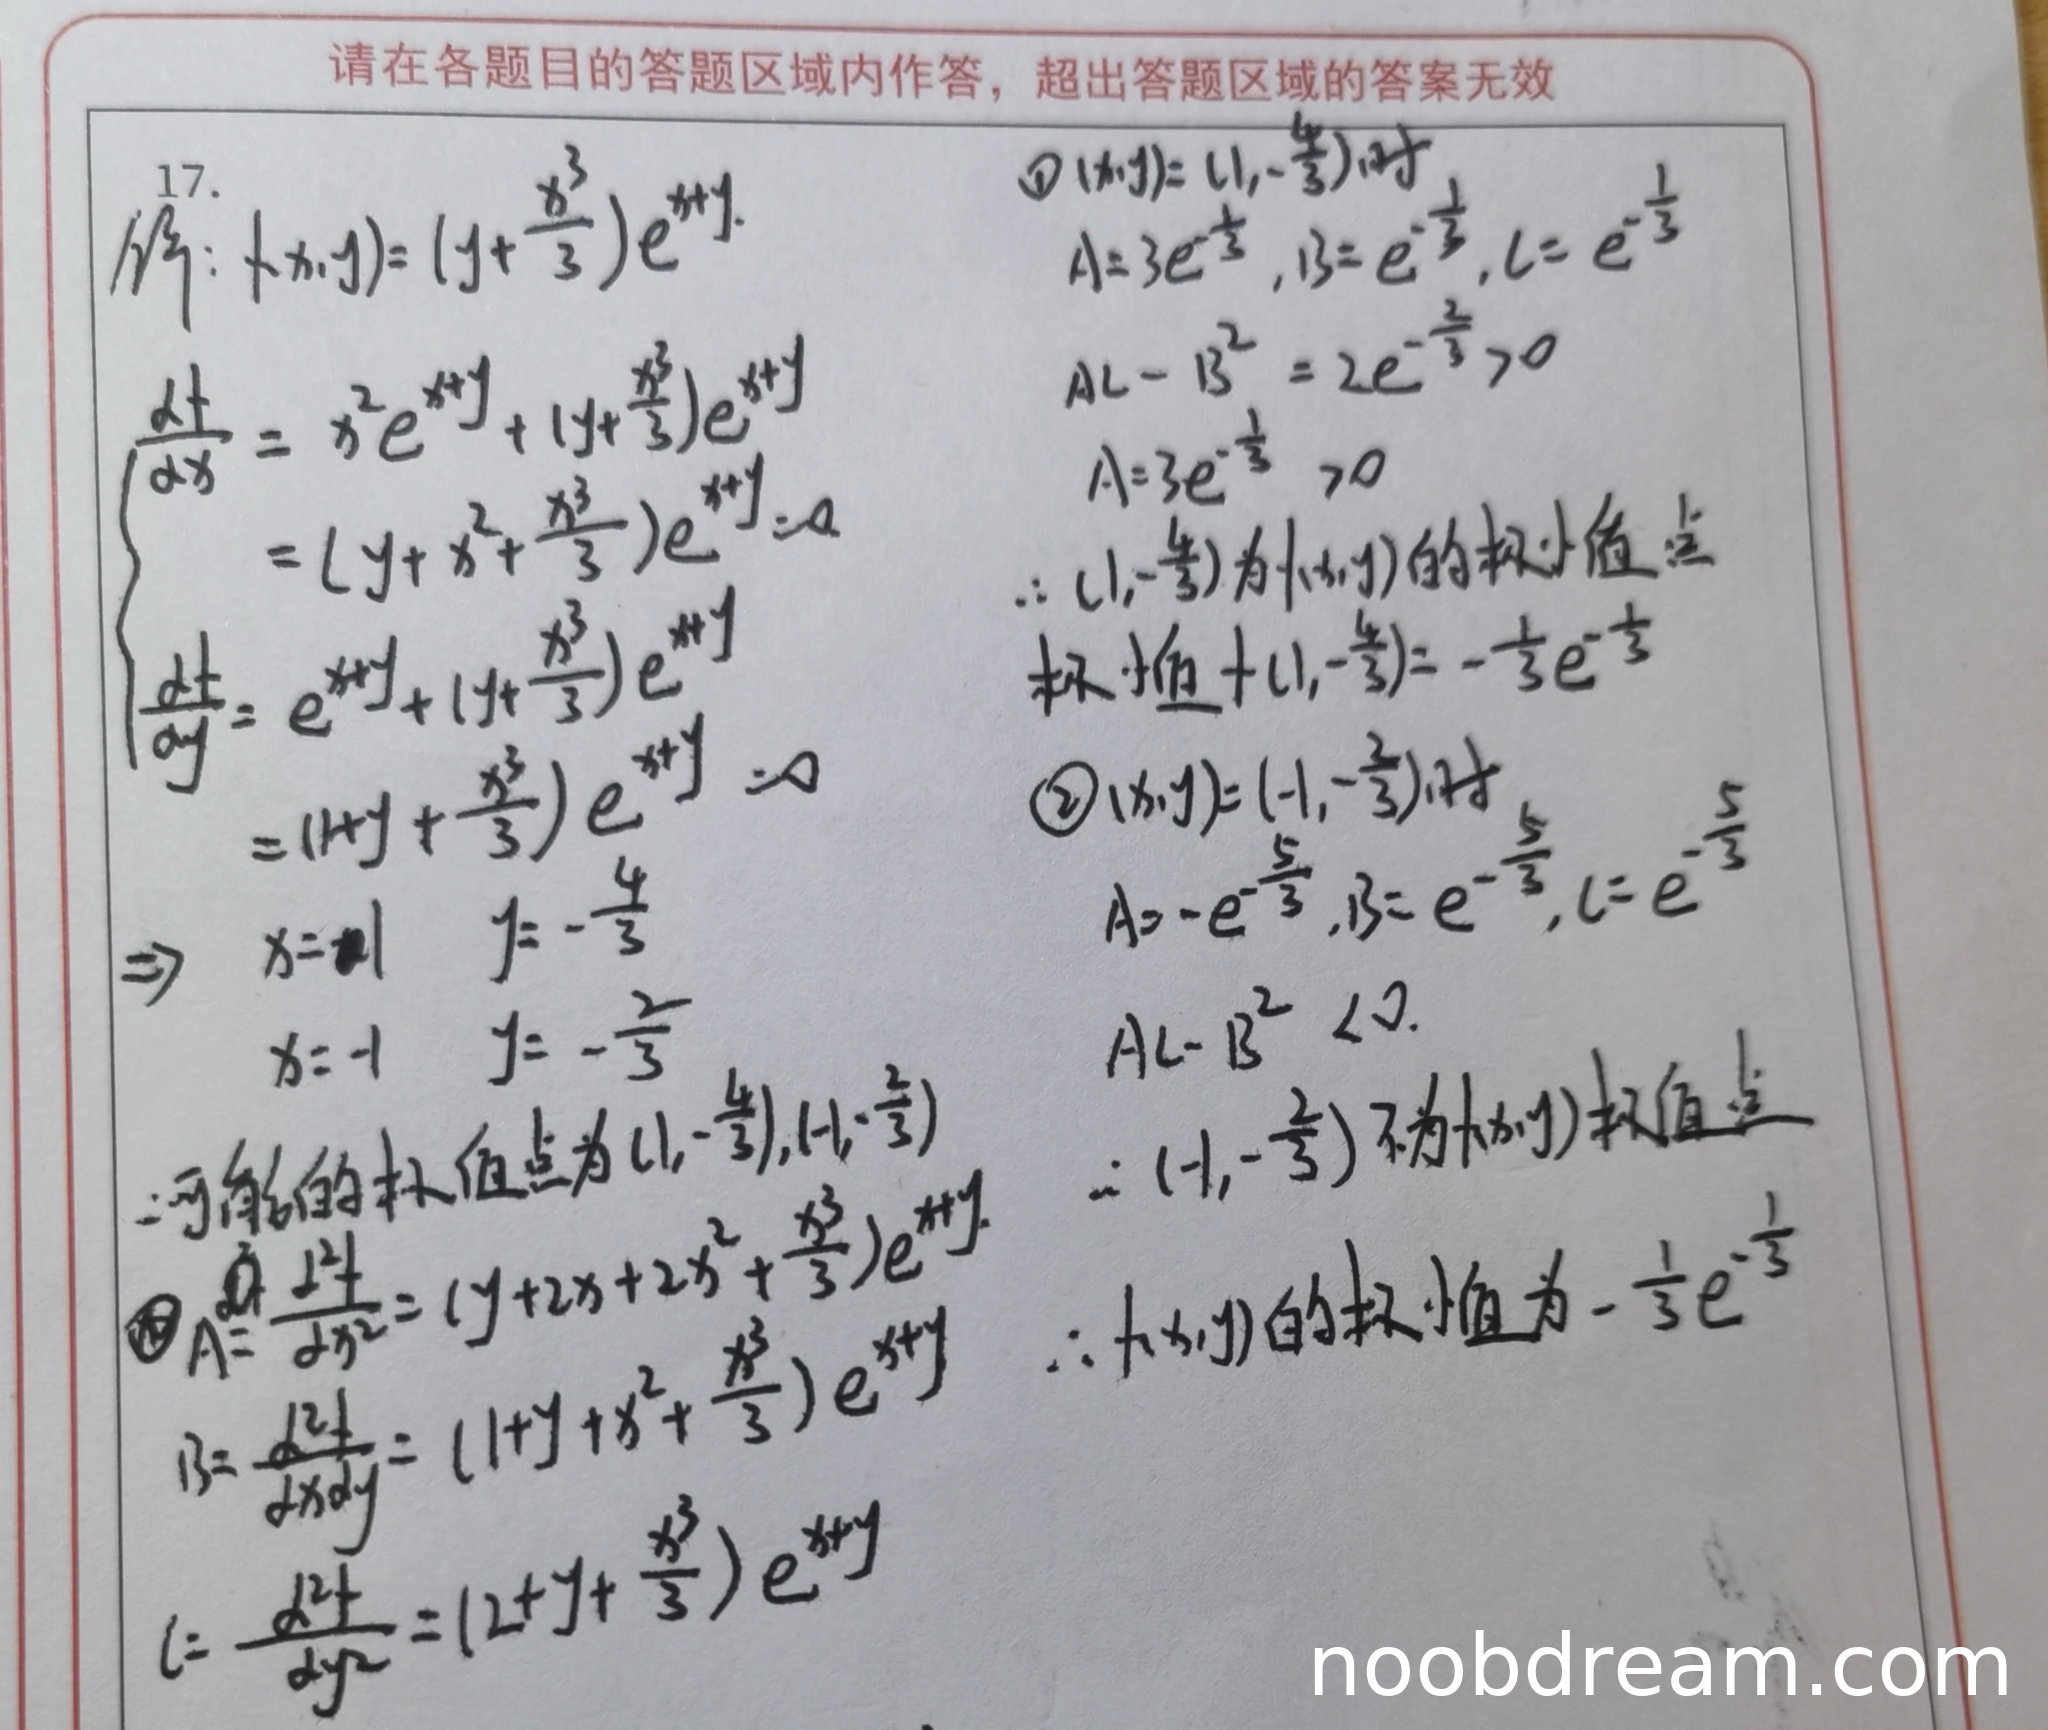 请在各题目的答题区域内作答，超出答题区域的答案无效
17.
解：f(x,y)=(y+x³/3)e^(x+y).
∂f/∂x = x²e^(x+y)+(y+x³/3)e^(x+y)
=(y+x²+x³/3)e^(x+y)=0
∂f/∂y = e^(x+y)+(y+x³/3)e^(x+y)
=(1+y+x³/3)e^(x+y)=0
⇒ x=1 y=-4/3
x=-1 y=-2/3
∴可能的极值点为(1,-4/3),(-1,-2/3)
A=∂²f/∂x²=(y+2x+2x²+x³/3)e^(x+y).
B=∂²f/∂x∂y=(1+y+x²+x³/3)e^(x+y)
C=∂²f/∂y²=(2+y+x³/3)e^(x+y)
①(x,y)=(1,-4/3)时
A=3e^(-1/3),B=e^(-1/3),C=e^(-1/3)
AC-B²=2e^(-2/3)>0
A=3e^(-1/3)>0
∴(1,-4/3)为f(x,y)的极小值点
极小值f(1,-4/3)=-1/3e^(-1/3)
②(x,y)=(-1,-2/3)时
A=-e^(-5/3),B=e^(-5/3),C=e^(-5/3)
AC-B²<0.
∴(-1,-2/3)不为f(x,y)极值点
∴f(x,y)的极小值为-1/3e^(-1/3)
noobdream.com